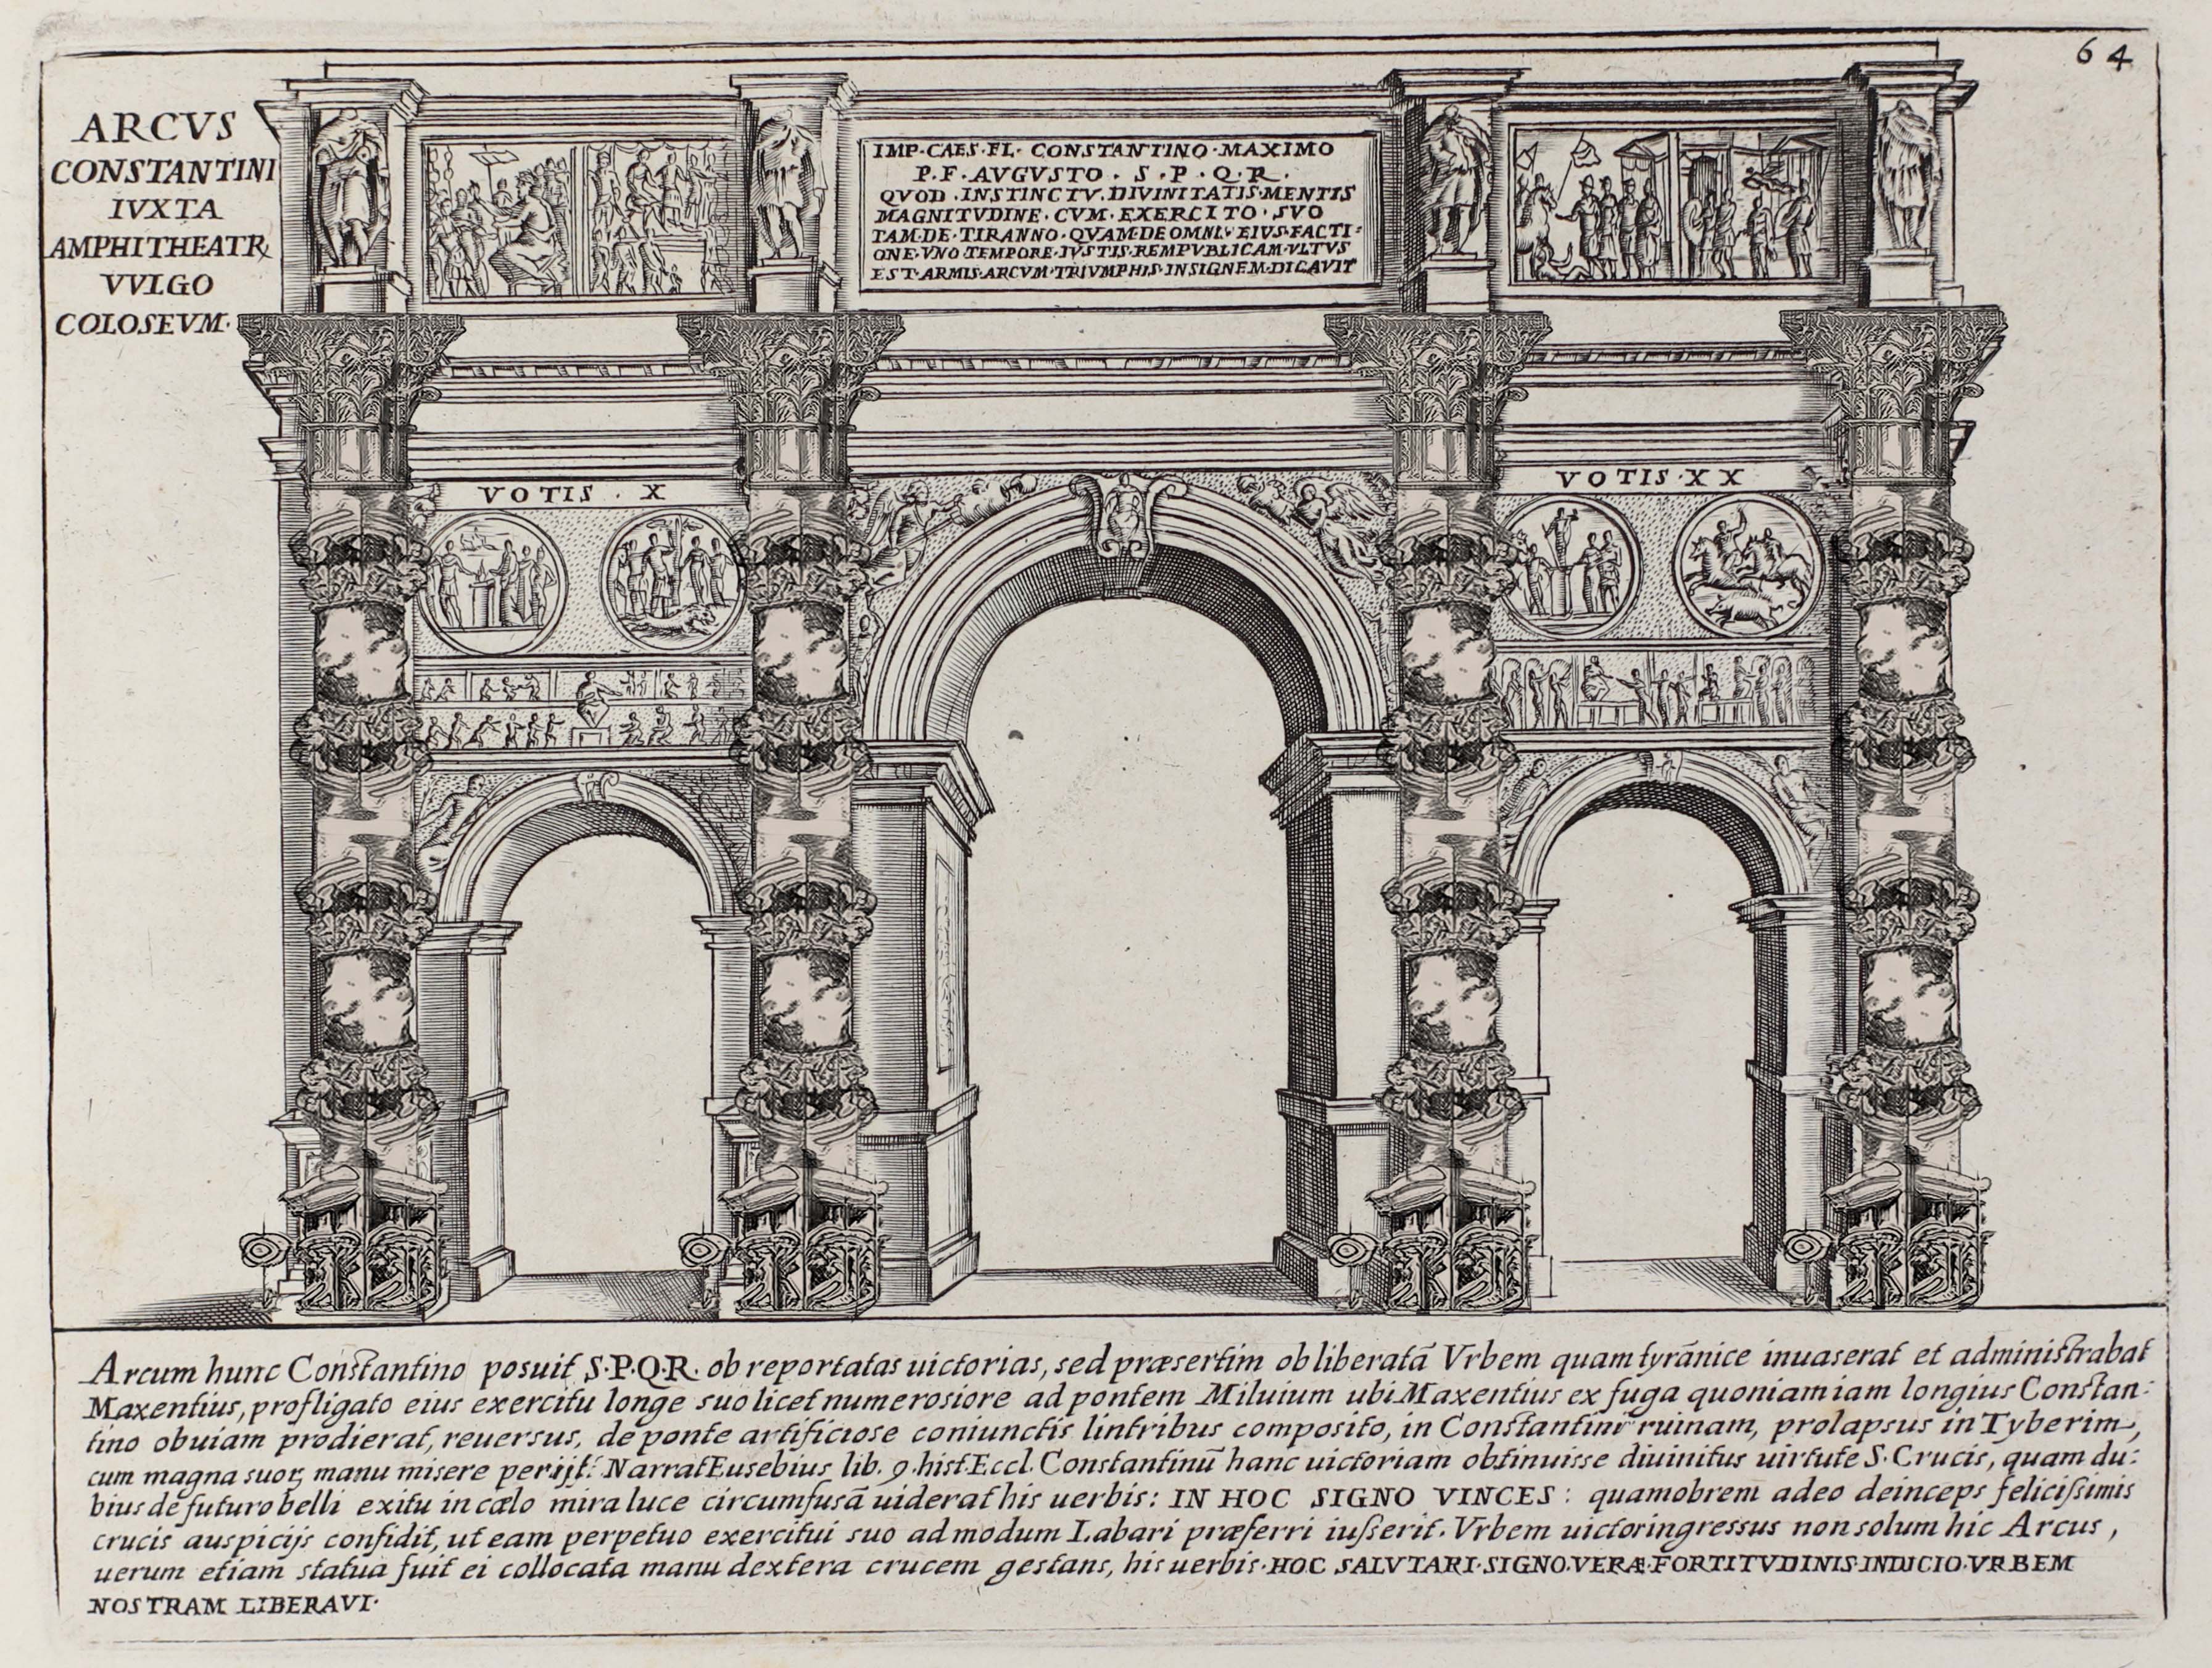 64
ARCVS
CONSTANTINI
IVXTA
AMPHITHEATR
VVLGO
COLOSEVM.
IMP·CAES·FL·CONSTANTINO·MAXIMO
P·F·AVGVSTO·S·P·Q·R·
QVOD·INSTINCTV·DIVINITATIS·MENTIS
MAGNITVDINE·CVM·EXERCITO·SVO
TAM·DE·TIRANNO·QVAM·DE OMNI·EIVS·FACTI:
ONE·VNO TEMPORE·IVSTIS·REMPVBLICAM·VLTVS
EST·ARMIS·ARCVM·TRIVMPHIS·INSIGNEM·DICAVIT
VOTIS·X
VOTIS·XX
Arcum hunc Constantino posuit S·P·Q·R· ob reportatas uictorias, sed præsertim ob liberatã Vrbem quam tyrãnice inuaserat et administrabat
Maxentius, profligato eius exercitu longe suo licet numerosiore ad pontem Miluium ubi Maxentius ex fuga quoniam iam longius Constan:
tino obuiam prodierat, reuersus, de ponte artificiose coniunctis lintribus composito, in Constantini ruinam, prolapsus in Tyberim,
cum magna suoꝝ manu misere perijt: Narrat Eusebius lib. 9. hist. Eccl. Constantinũ hanc uictoriam obtinuisse diuinitus uirtute S. Crucis, quam du:
bius de futuro belli exitu in cælo mira luce circumfusã uiderat his uerbis: IN HOC SIGNO VINCES: quamobrem adeo deinceps felicissimis
crucis auspicijs confidit, ut eam perpetuo exercitui suo ad modum Labari præferri iusserit. Vrbem uictor ingressus non solum hic Arcus,
uerum etiam statua fuit ei collocata manu dextera crucem gestans, his uerbis·HOC SALVTARI·SIGNO·VERÆ·FORTITVDINIS·INDICIO·VRBEM
NOSTRAM LIBERAVI·